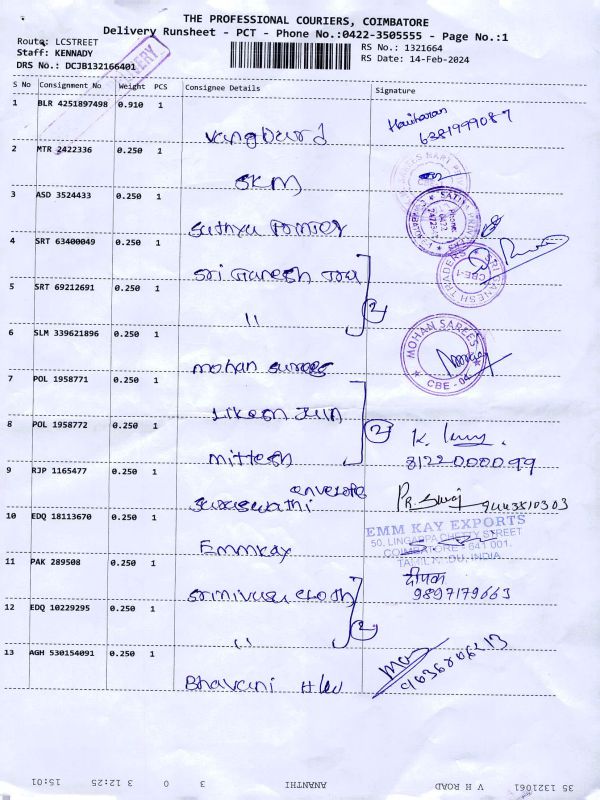 THE PROFESSIONAL COURIERS, COIMBATORE
Delivery Runsheet - PCT - Phone No.:0422-3505555 - Page No.:1
Route: LCSTREET
RS No.: 1321664
Staff: KENNADY
RS Date: 14-Feb-2024
DRS No.: DCJB132166401
S No Consignment No Weight PCS Consignee Details Signature
1 BLR 4251897498 0.910 1
Hariharan
6381999087
2 MTR 2422336 0.250 1
SKM
3 ASD 3524433 0.250 1
Sathya Printer
4 SRT 63400049 0.250 1
Sri Ganesh Tra
SRI GANESH TRADERS
CBE-1
5 SRT 69212691 0.250 1
"
2
6 SLM 339621896 0.250 1
mohan sarees
MOHAN SAREES
CBE - 01
7 POL 1958771 0.250 1
Likesh
8 POL 1958772 0.250 1
mittesh
2
8122000099
9 RJP 1165477 0.250 1
saraswathi
9443810303
10 EDQ 18113670 0.250 1
Emmkay
EMM KAY EXPORTS
50, LINGAPPA CHETTY STREET
COIMBATORE - 641 001.
11 PAK 289508 0.250 1
Srinivasa cloth
दीपक
9897179663
12 EDQ 10229295 0.250 1
"
2
13 AGH 530154091 0.250 1
Bhavani
35 1321061 V H ROAD ANANTHI 3 0 3 12:25 15:01